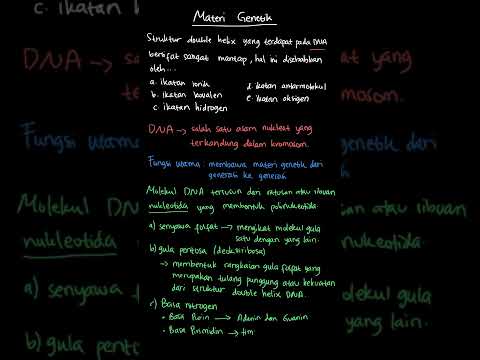 Materi Genetik
Struktur double helix yang terdapat pada DNA
bersifat sangat mantap, hal ini disebabkan
oleh...
a. ikatan ionik
b. ikatan kovalen
c. ikatan hidrogen
d. ikatan antarmolekul
e. ikatan oksigen
DNA → salah satu asam nukleat yang
terkandung dalam kromosom.
Fungsi utama : membawa materi genetik dari
generasi ke generasi
Molekul DNA tersusun dari ratusan atau ribuan
nukleotida yang membentuk polinukleotida.
a) senyawa fosfat → mengikat molekul gula
satu dengan yang lain.
b) gula pentosa (deoksiribosa)
→ membentuk rangkaian gula fosfat yang
merupakan tulang punggung atau kekuatan
dari struktur double helix DNA.
c) Basa nitrogen
• Basa Purin → Adenin dan Guanin
• Basa Pirimidin → tim